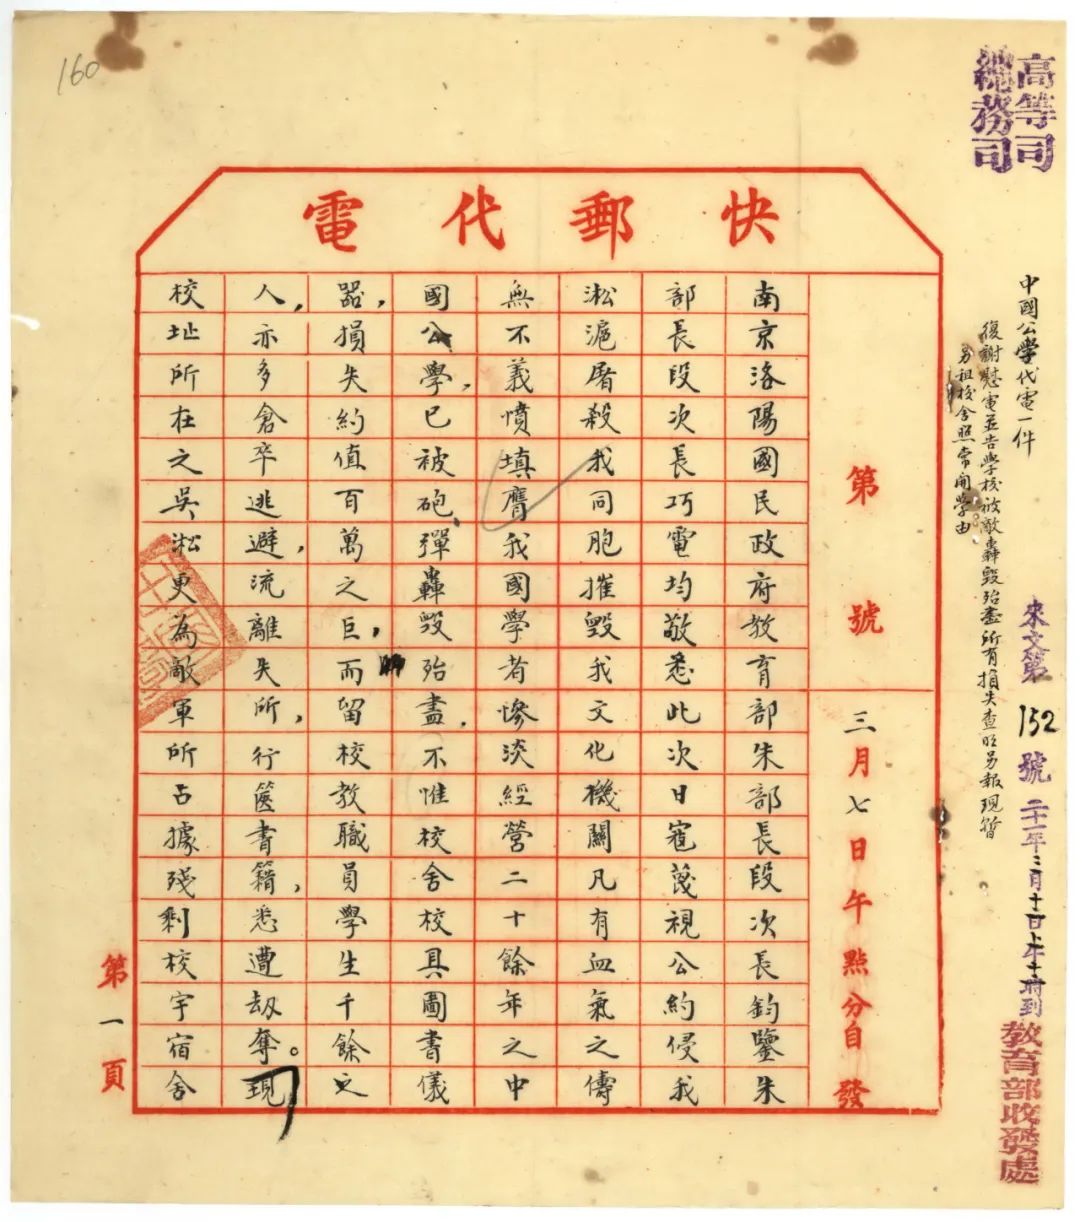 160
高等司
總務司
中國公學代電一件
復謝慰電並告學校被敵轟毀殆盡所有損失查明另報現暫
另租校舍照常開學由
來文第152號二十一年三月十日上午十時到
教育部收發處
快郵代電
第號
三月七日午點分自發
南京洛陽國民政府教育部朱部長段次長鈞鑒朱
部長段次長巧電均敬悉此次日寇蔑視公約侵我
淞滬屠殺我同胞摧毀我文化機關凡有血氣之儔
無不義憤填膺我國學者慘淡經營二十餘年之中
國公學,已被砲彈轟毀殆盡.不惟校舍校具圖書儀
器,損失約值百萬之巨,而留校教職員學生千餘
人,亦多倉卒逃避,流離失所,行篋書籍,悉遭劫奪。現
校址所在之吳淞更為敵軍所占據殘剩校宇宿舍
第一頁